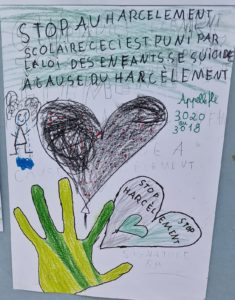 STOP AU HARCELEMENT
SCOLAIRE CECI EST PUNI PAR
LA LOI DES ENFANTS SE SUICIDE
À CAUSE DU HARCÈLEMENT
Appelle le
3020
ou
3018
STOP
HARCÈLEMENT
STOP
HARCÈLEMENT